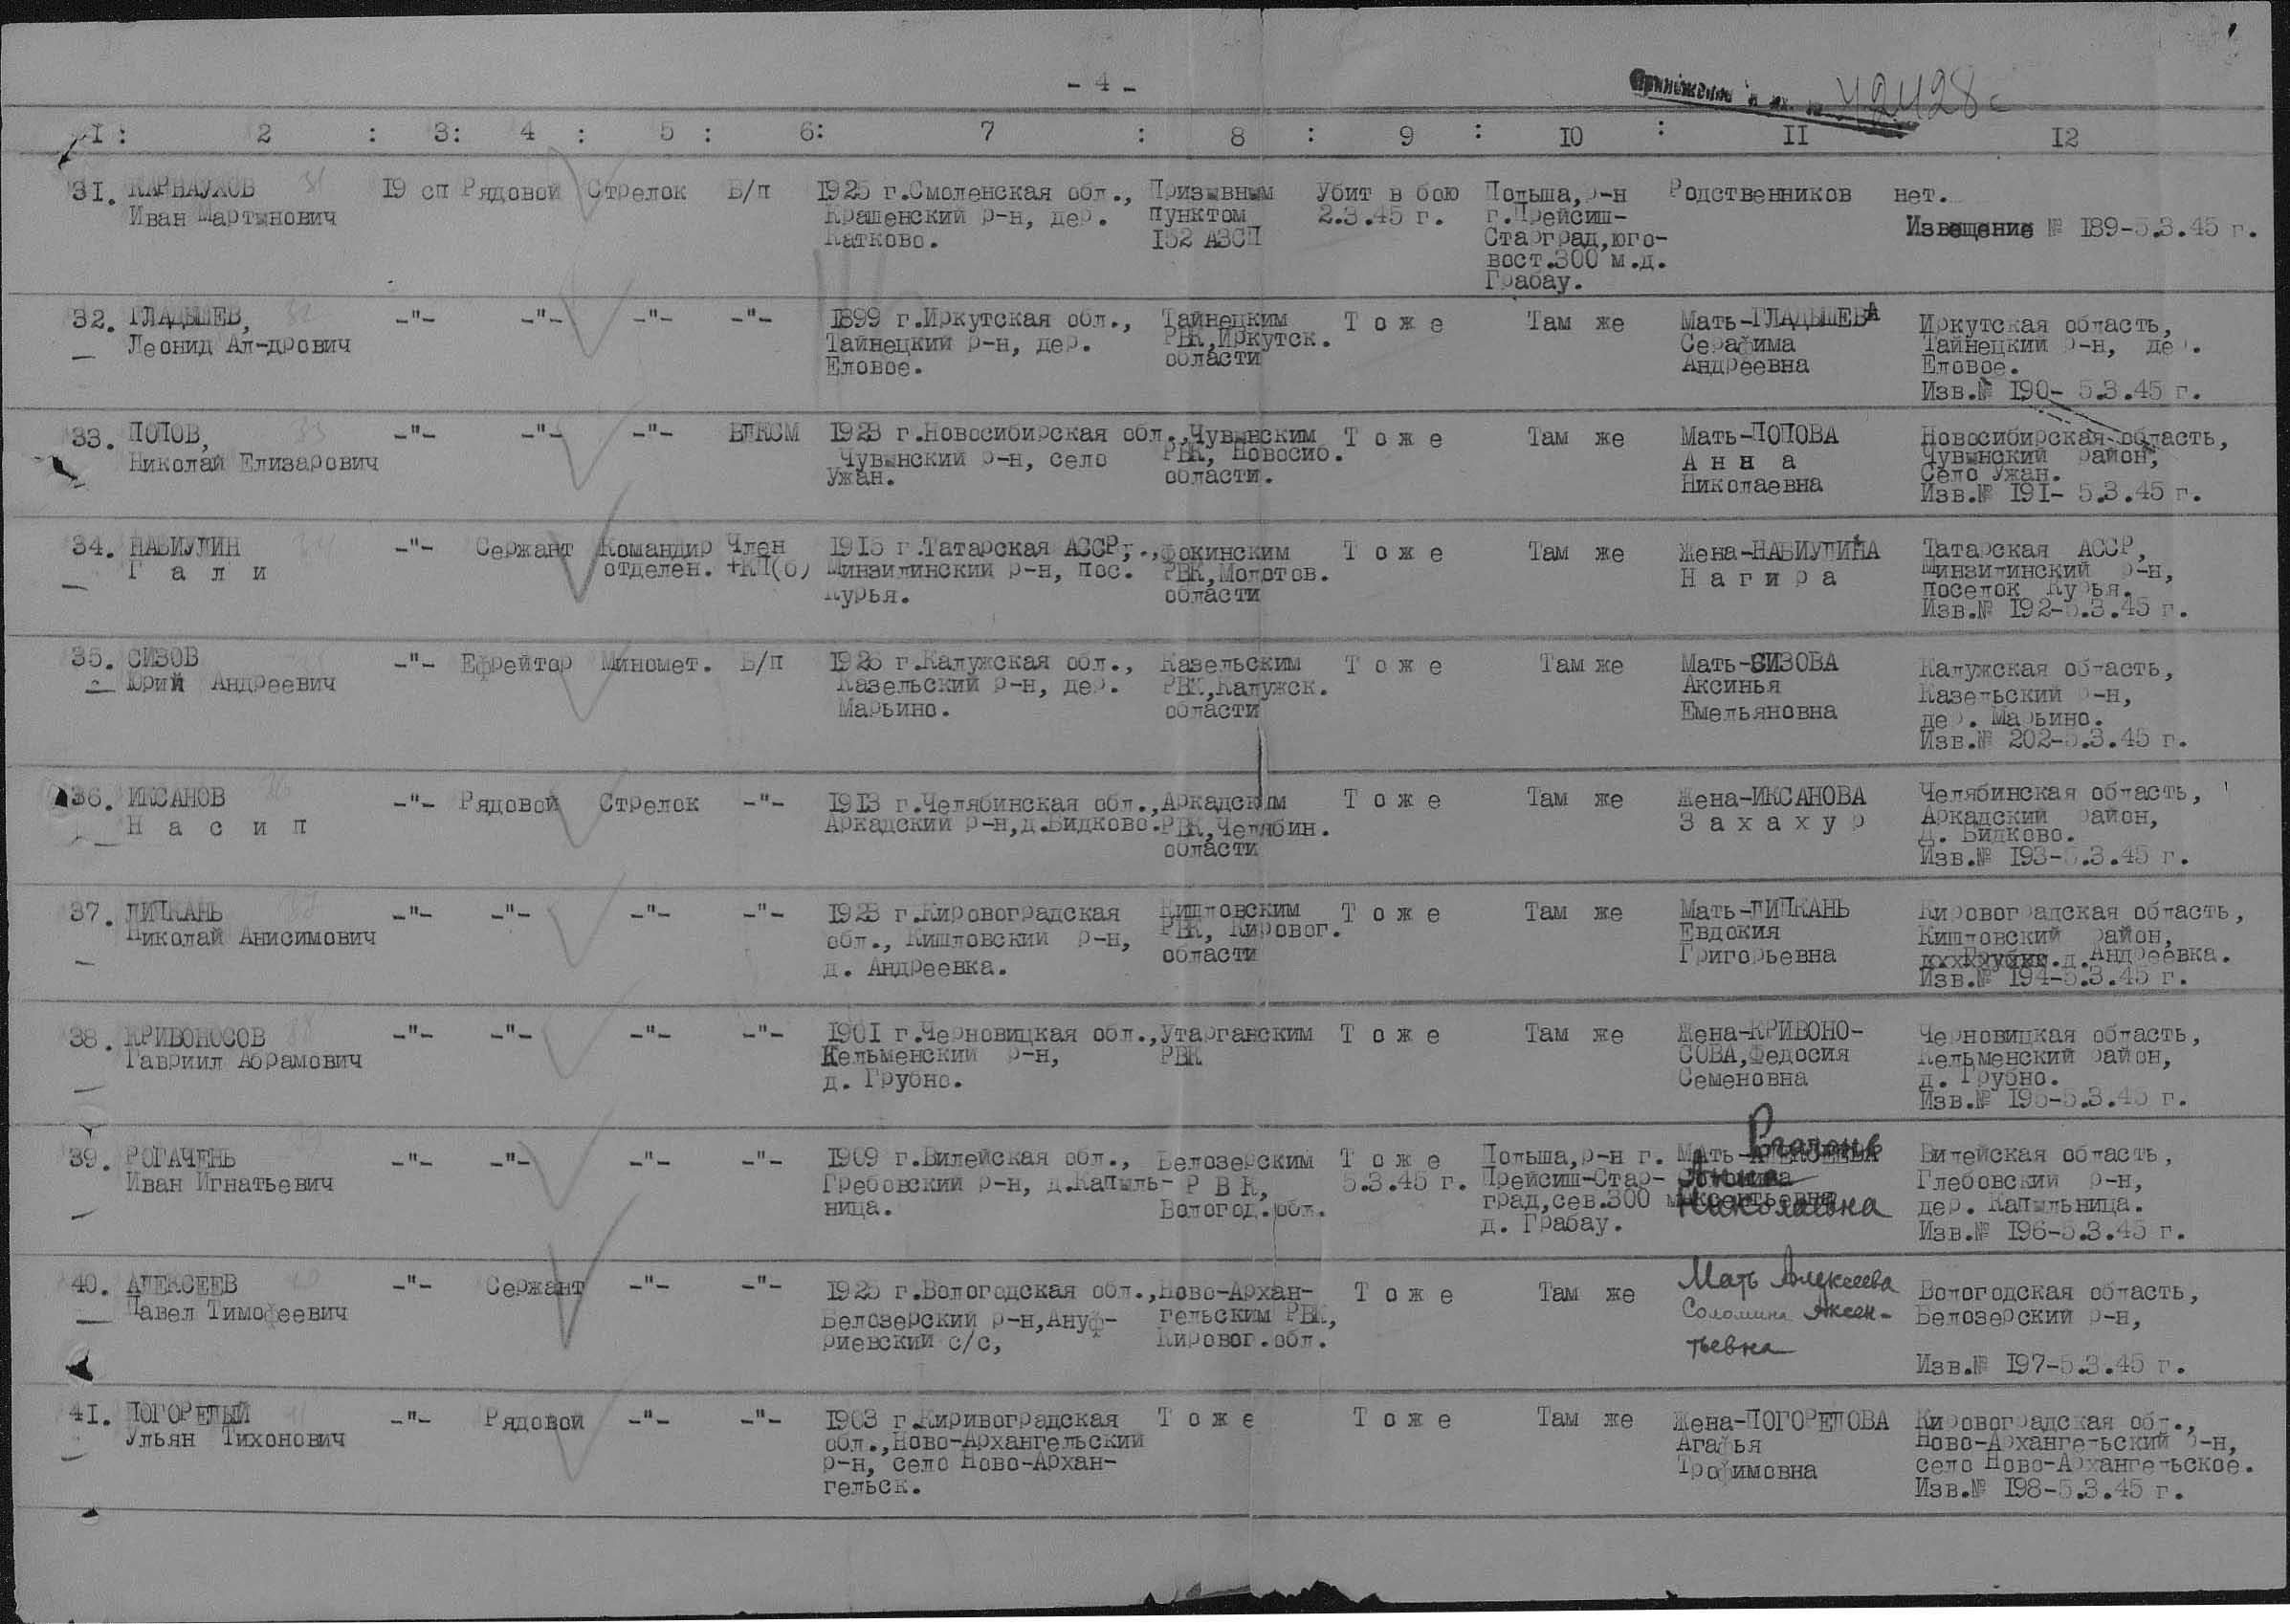 - 4 -
Приложение к вх. № 42428с
I : 2 : 3: 4 : 5 : 6: 7 : 8 : 9 : 10 : II I2
31. КАРНАУХОВ 31 I9 сп Рядовой Стрелок Б/п I925 г.Смоленская обл., Призывным Убит в бою Польша,р-н Родственников нет.
Иван Мартынович Крашенский р-н, дер. пунктом 2.3.45 г. г.Прейсиш- Извещение № I89-5.3.45 г.
Катково. I52 АЗСП Старград,юго-
вост.300 м.д.
Грабау.
32. ГЛАДЫШЕВ, 32 -"- -"- -"- -"- I899 г.Иркутская обл., Тайнецким Т о ж е Там же Мать-ГЛАДЫШЕВА Иркутская область,
Леонид Ал-дрович Тайнецкий р-н, дер. РВК,Иркутск. Серафима Тайнецкий р-н, дер.
Еловое. области Андреевна Еловое.
Изв.№ I90- 5.3.45 г.
33. ПОПОВ, 33 -"- -"- -"- ВЛКСМ I923 г.Новосибирская обл.,Чувынским Т о ж е Там же Мать-ПОПОВА Новосибирская область,
Николай Елизарович Чувынский р-н, село РВК, Новосиб. А н н а Чувынский район,
Ужан. области. Николаевна Село Ужан.
Изв.№ I9I- 5.3.45 г.
34. НАБИУЛИН 34 -"- Сержант Командир Член I915 г.Татарская АССР, Фокинским Т о ж е Там же Жена-НАБИУЛИНА Татарская АССР,
Г а л и отделен. ВКП(б) Минзилинский р-н, пос. РВК,Молотов. Н а г и р а Минзилинский р-н,
Курья. области поселок Курья.
Изв.№ I92-5.3.45 г.
35. СИЗОВ -"- Ефрейтор Миномет. Б/п I926 г.Калужская обл., Казельским Т о ж е Там же Мать-СИЗОВА Калужская область,
Юрий Андреевич Казельский р-н, дер. РВК,Калужск. Аксинья Казельский р-н,
Марьино. области Емельяновна дер. Марьино.
Изв.№ 202-5.3.45 г.
36. ИКСАНОВ 36 -"- Рядовой Стрелок -"- I913 г.Челябинская обл.,Аркадским Т о ж е Там же Жена-ИКСАНОВА Челябинская область,
Н а с и п Аркадский р-н,д.Бидково.РВК,Челябин. З а х а х у р Аркадский район,
области Д. Бидково.
Изв.№ I93-5.3.45 г.
37. ЛИПКАНЬ -"- -"- -"- -"- I923 г.Кировоградская Кишловским Т о ж е Там же Мать-ЛИПКАНЬ Кировоградская область,
Николай Анисимович обл., Кишловский р-н, РВК, Кировог. Евдокия Кишловский район,
д. Андреевка. области Григорьевна д.Андреевка.
Изв.№ I94-5.3.45 г.
38. КРИВОНОСОВ 38 -"- -"- -"- -"- I90I г.Черновицкая обл.,Утарганским Т о ж е Там же Жена-КРИВОНО- Черновицкая область,
Гавриил Абрамович Кельменский р-н, РВК СОВА,Федосия Кельменский район,
д. Грубно. Семеновна д. Грубно.
Изв.№ I95-5.3.45 г.
39. РОГАЧЕНЬ -"- -"- -"- -"- I909 г.Вилейская обл., Белозерским Т о ж е Польша,р-н г. Мать- Рогачень Вилейская область,
Иван Игнатьевич Гребовский р-н, д.Капыль- Р В К, 5.3.45 г. Прейсиш-Стар- Анна Глебовский р-н,
ница. Вологод.обл. град,сев.300 м Николаевна дер. Капыльница.
д. Грабау. Изв.№ I96-5.3.45 г.
40. АЛЕКСЕЕВ 40 -"- Сержант -"- -"- I925 г.Вологодская обл.,Ново-Архан- Т о ж е Там же Мать Алексеева Вологодская область,
Павел Тимофеевич Белозерский р-н,Ануф- гельским РВК, Соломина Аксен- Белозерский р-н,
риевский с/с, Кировог.обл. тьевна
Изв.№ I97-5.3.45 г.
4I. ПОГОРЕЛЫЙ 41 -"- Рядовой -"- -"- I903 г.Киривоградская Т о ж е Т о ж е Там же Жена-ПОГОРЕЛОВА Кировоградская обл.,
Ульян Тихонович обл.,Ново-Архангельский Агафья Ново-Архангельский р-н,
р-н, село Ново-Архан- Трофимовна село Ново-Архангельское.
гельск. Изв.№ I98-5.3.45 г.